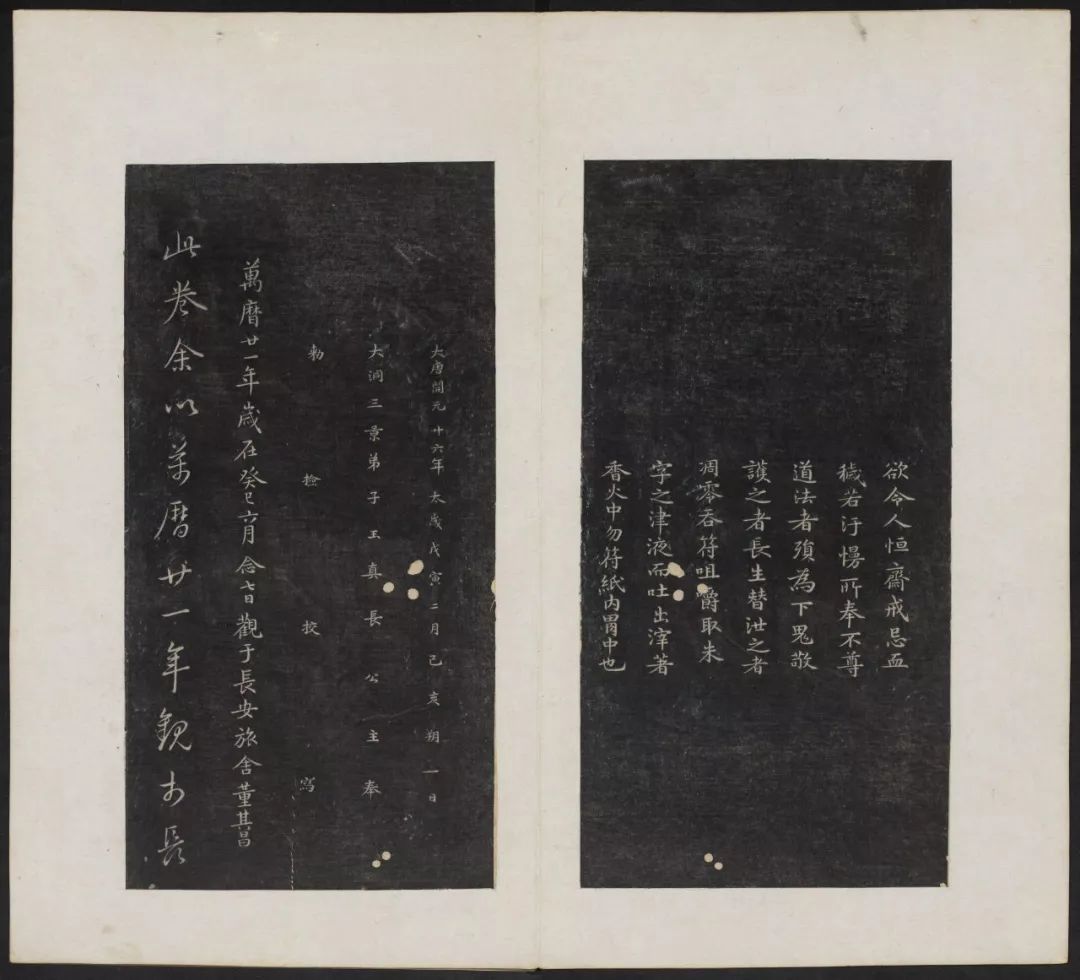 欲令人恒齋戒忌血
穢若汙慢所奉不尊
道法者殞為下鬼敬
護之者長生替泄之者
凋零吞符咀嚼取朱
字之津液而吐出滓著
香火中勿符紙內胃中也
大唐開元十六年太歲戊寅二月己亥朔一日
大洞三景弟子玉真長公主奉
勅檢校寫
萬曆廿一年歲在癸巳六月念七日觀于長安旅舍董其昌
此卷余以萬曆廿一年觀於長